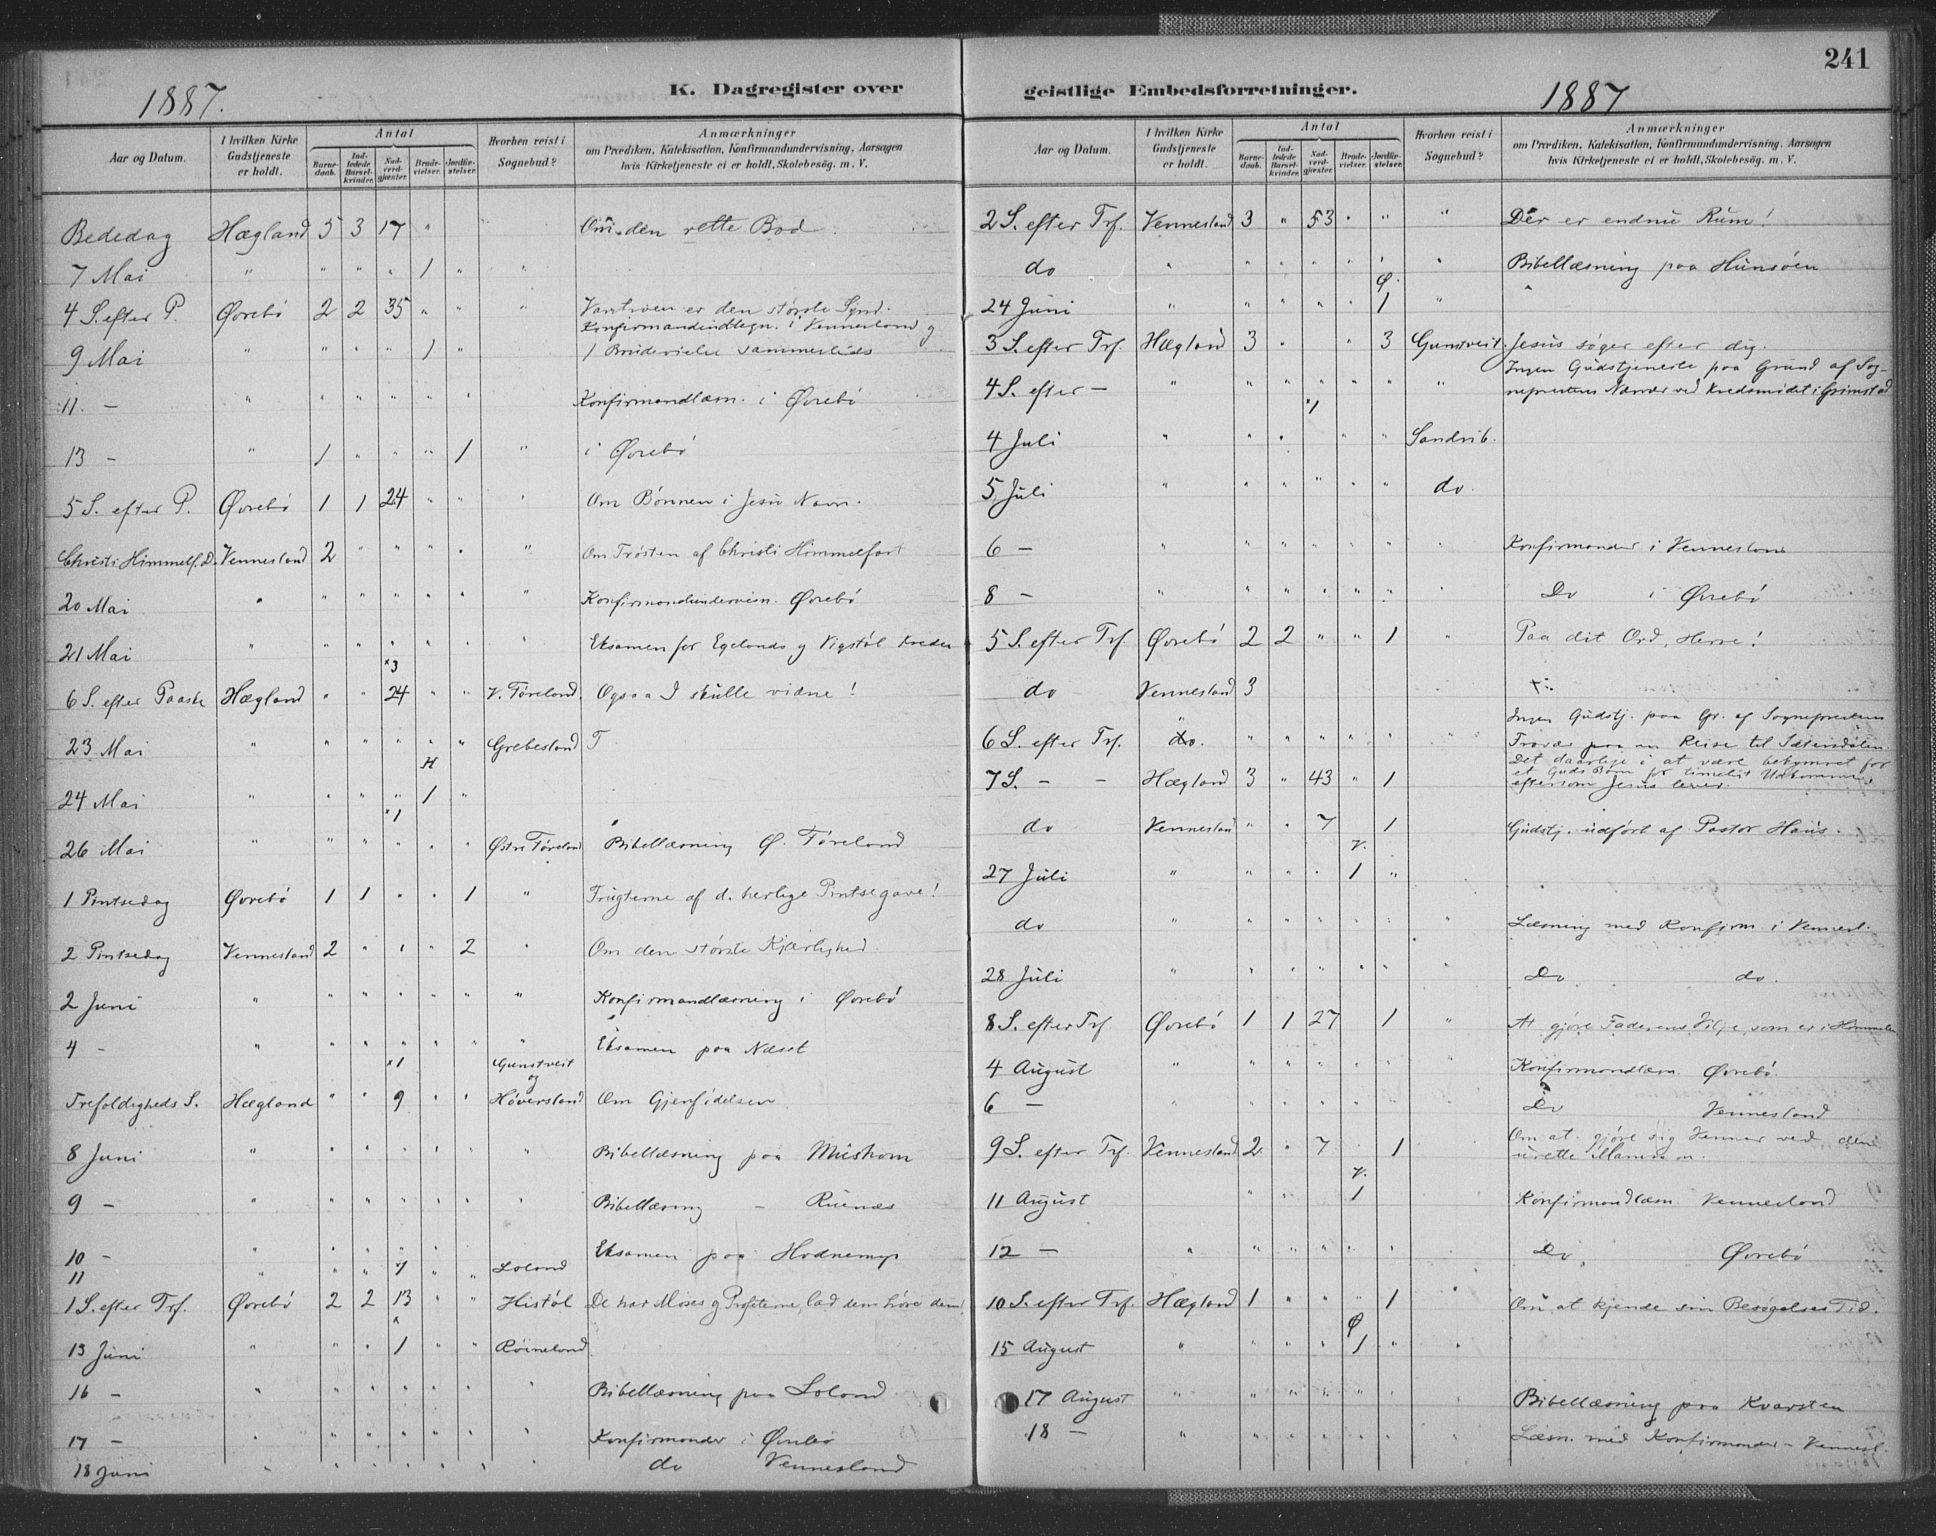 241
1887.
K. Dagregister over
Aar og Datum.
I hvilken Kirke Gudstjeneste er holdt.
Antal
Barnedaab.
Indledede Barselkvinder.
Nadverdgjæster.
Brudevielser.
Jordfæstelser.
Hvorhen reist i Sognebud?
Anmærkninger
om Prædiken, Katekisation, Konfirmandundervisning, Aarsagen
hvis Kirketjeneste ei er holdt, Skolebesøg. m. V.
Bededag Hægland 5 3 17 " " Om den rette Bod
7 Mai " " " " 1 " "
4 S. efter P. Øvrebø 2 2 35 " " " Vantroen er den største Synd.
Konfirmandindtegn. i Vennesland og
9 Mai " " " " 1 " 1 Brudevielse sammesteds
11 - " " " " " " Konfirmandlæsn. i Øvrebø
13 - " 1 " " " 1 " i Øvrebø
5 S. efter P. Øvrebø 1 1 24 " " " Om Bønnen i Jesu Navn.
Christi Himmelf. D. Vennesland 2 " " " " " Om Trøsten af Christi Himmelfart
20 Mai " " " " " " " Konfirmandundervisn. Øvrebø
21 Mai " " " " " " " Eksamen for Egelands og Vigstøl Kredse
×3
6 S. efter Paaske Hægland " " 24 " " V. Føreland. Ogsaa I skulle vidne!
23 Mai " " " " " " Grebesland
H
24 Mai " " " " 1 "
×1
26 Mai " " " " " " Østre Føreland Bibellæsning Ø. Føreland
1 Pintsedag Øvrebø 1 1 " " 1 " Frugterne af d. herlige Pintsegave!
2 Pintsedag Vennesland 2 " " " 2 " Om den største Kjærlighed.
2 Juni " " " " " " " Konfirmandlæsning i Øvrebø
4 - " " " " " " " Eksamen paa Næset
×1 Gunstveit
og
Trefoldigheds S. Hægland " " 9 " " Høversland Om Gjenfødelsen
8 Juni " " " " " " " Bibellæsning paa Mushom
9 - " " " " " " " Bibellæsning - Ruenæs
10 - " " " " " Eksamen paa Hodnemyr
11 " " " 1 " " Loland
1 S. efter Trf. Øvrebø 2 2 13 " " Histøl De har Moses og Profeterne, lad dem høre dem!
13 Juni " " " 1 " " Røineland
16 - " " " " " " " Bibellæsning paa Loland
17 - " " " " " " " Konfirmander i Øvrebø
18 Juni " " " " " " " do Vennesland
geistlige Embedsforretninger.
1887
Aar og Datum.
I hvilken Kirke Gudstjeneste er holdt.
Antal
Barnedaab.
Indledede Barselkvinder.
Nadverdgjæster.
Brudevielser.
Jordfæstelser.
Hvorhen reist i Sognebud?
Anmærkninger
om Prædiken, Katekisation, Konfirmandundervisning, Aarsagen
hvis Kirketjeneste ei er holdt, Skolebesøg. m. V.
2 S. efter Trf. Vennesland 3 " 53 " " " Der er endnu Rum!
do " " " " " " " Bibellæsning paa Hunsøen
Ø.
24 Juni " " " " " 1 "
3 S. efter Trf. Hægland 3 " " 3 Gunstveit. Jesus søger efter dig.
Ingen Gudstjeneste paa Grund af Sog-
4 S. efter - " " " " " " " nepræstens Nærvær ved Kredsmødet i Grimstad
×1
4 Juli " " " " " Sandrib.
5 Juli " " " " " " do.
6 - " " " " " " " Konfirmander i Vennesland
8 - " " " " " " " Do i Øvrebø
5 S. efter Trf. Øvrebø 2 2 " " 1 " Paa dit Ord, Herre!
do Vennesland 3
Ingen Gudstj. paa Gr. af Sognepræstens
6 S. efter Trf. do. " " " " " " Fravær paa en Reise til Sætersdalen
Det daarlige i at være bekymret for
7 S. - - Hægland 3 " 43 " 1 et Guds Barn for timeligt Udkomme,
eftersom Jesus lever.
do Vennesland " " 7 1 Gudstj. udført af Pastor Hans.
V.
27 Juli " " " " 1 "
do " " " " " " " Læsning med Konfirm. i Vennesl.
28 Juli " " " " " " " Do do.
8 S. efter Trf Øvrebø 1 1 27 1 " At gjøre Faderens Vilje, som er i Himmelen
4 August " " " " " " " Konfirmandlæsn. Øvrebø.
6 - " " " " " " " Do Vennesland
9 S. efter Trf. Vennesland 2 " 7 1 Om at gjøre sig Venner ved den
urette Mammon.
V.
11 August " " 1 Konfirmandlæsn. Vennesland
12 - " " " " " " " Do Øvrebø
10 S. efter Trf. Hægland 1 " " " 1 " Om at kjende sin Besøgelses Tid.
Ø
15 August " " " " 1 " "
17 August " " " " " " " Bibellæsning paa Kvarsten
18 - " " " " " " " Læsn. med Konfirmander - Vennesl.